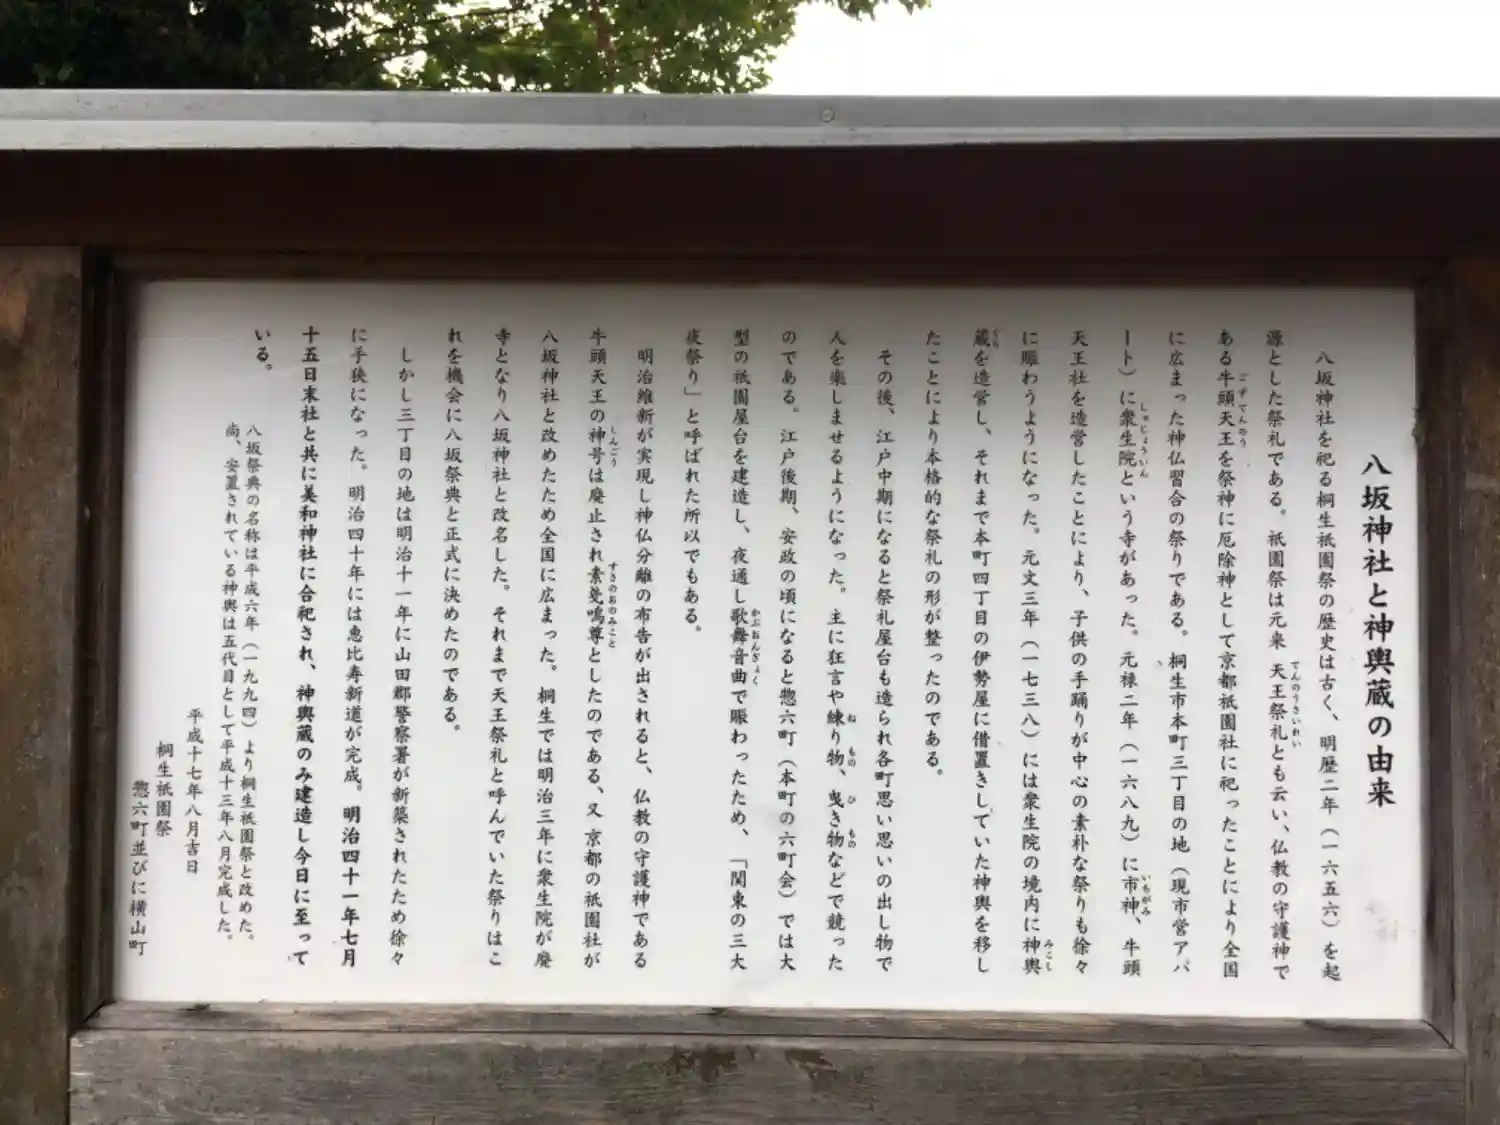 八坂神社と神輿蔵の由来
八坂神社を祀る桐生祇園祭の歴史は古く、明暦二年（一六五六）を起
源とした祭礼である。祇園祭は元来 天王祭礼とも云い、仏教の守護神で
ある牛頭天王を祭神に厄除神として京都祇園社に祀ったことにより全国
に広まった神仏習合の祭りである。桐生市本町三丁目の地（現市営アパ
ート）に衆生院という寺があった。元禄二年（一六八九）に市神、牛頭
天王社を造営したことにより、子供の手踊りが中心の素朴な祭りも徐々
に賑わうようになった。元文三年（一七三八）には衆生院の境内に神輿
蔵を造営し、それまで本町四丁目の伊勢屋に借置きしていた神輿を移し
たことにより本格的な祭礼の形が整ったのである。
その後、江戸中期になると祭礼屋台も造られ各町思い思いの出し物で
人を楽しませるようになった。主に狂言や練り物、曳き物などで競った
のである。江戸後期、安政の頃になると惣六町（本町の六町会）では大
型の祇園屋台を建造し、夜通し歌舞音曲で賑わったため、「関東の三大
夜祭り」と呼ばれた所以でもある。
明治維新が実現し神仏分離の布告が出されると、仏教の守護神である
牛頭天王の神号は廃止され素戔嗚尊としたのである、又 京都の祇園社が
八坂神社と改めたため全国に広まった。桐生では明治三年に衆生院が廃
寺となり八坂神社と改名した。それまで天王祭礼と呼んでいた祭りはこ
れを機会に八坂祭典と正式に決めたのである。
しかし三丁目の地は明治十一年に山田郡警察署が新築されたため徐々
に手狭になった。明治四十年には恵比寿新道が完成。明治四十一年七月
十五日末社と共に美和神社に合祀され、神輿蔵のみ建造し今日に至って
いる。
八坂祭典の名称は平成六年（一九九四）より桐生祇園祭と改めた。
尚、安置されている神輿は五代目として平成十三年八月完成した。
平成十七年八月吉日
桐生祇園祭
惣六町並びに横山町